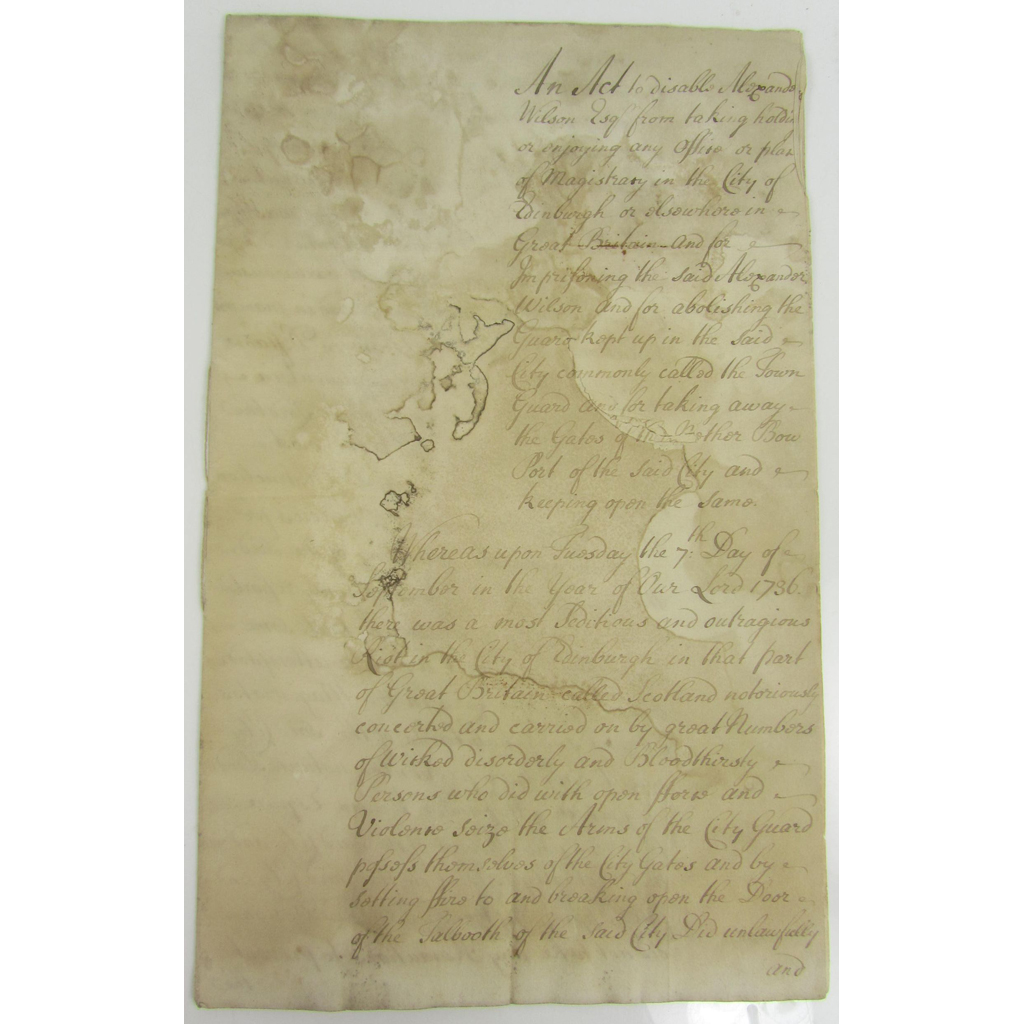 An Act to disable Alexander
Wilson Esqr from taking holding
or enjoying any Office or place
of Magistracy in the City of
Edinburgh or elsewhere in
Great Britain And for
Imprisoning the said Alexander
Wilson And for abolishing the
Guard kept up in the said
City commonly called the Town
Guard and for taking away
the Gates of the Nether Bow
Port of the said City and
keeping open the same.
Whereas upon Tuesday the 7th: Day of
September in the Year of Our Lord 1736.
there was a most Seditious and outragious
Riot in the City of Edinburgh in that part
of Great Britain called Scotland notoriously
concerted and carried on by great Numbers
of Wicked disorderly and Bloodthirsty
Persons who did with open fforce and
Violence seize the Arms of the City Guard
possess themselves of the City Gates and by
setting ffire to and breaking open the Door
of the Talbooth of the said City Did unlawfully
and